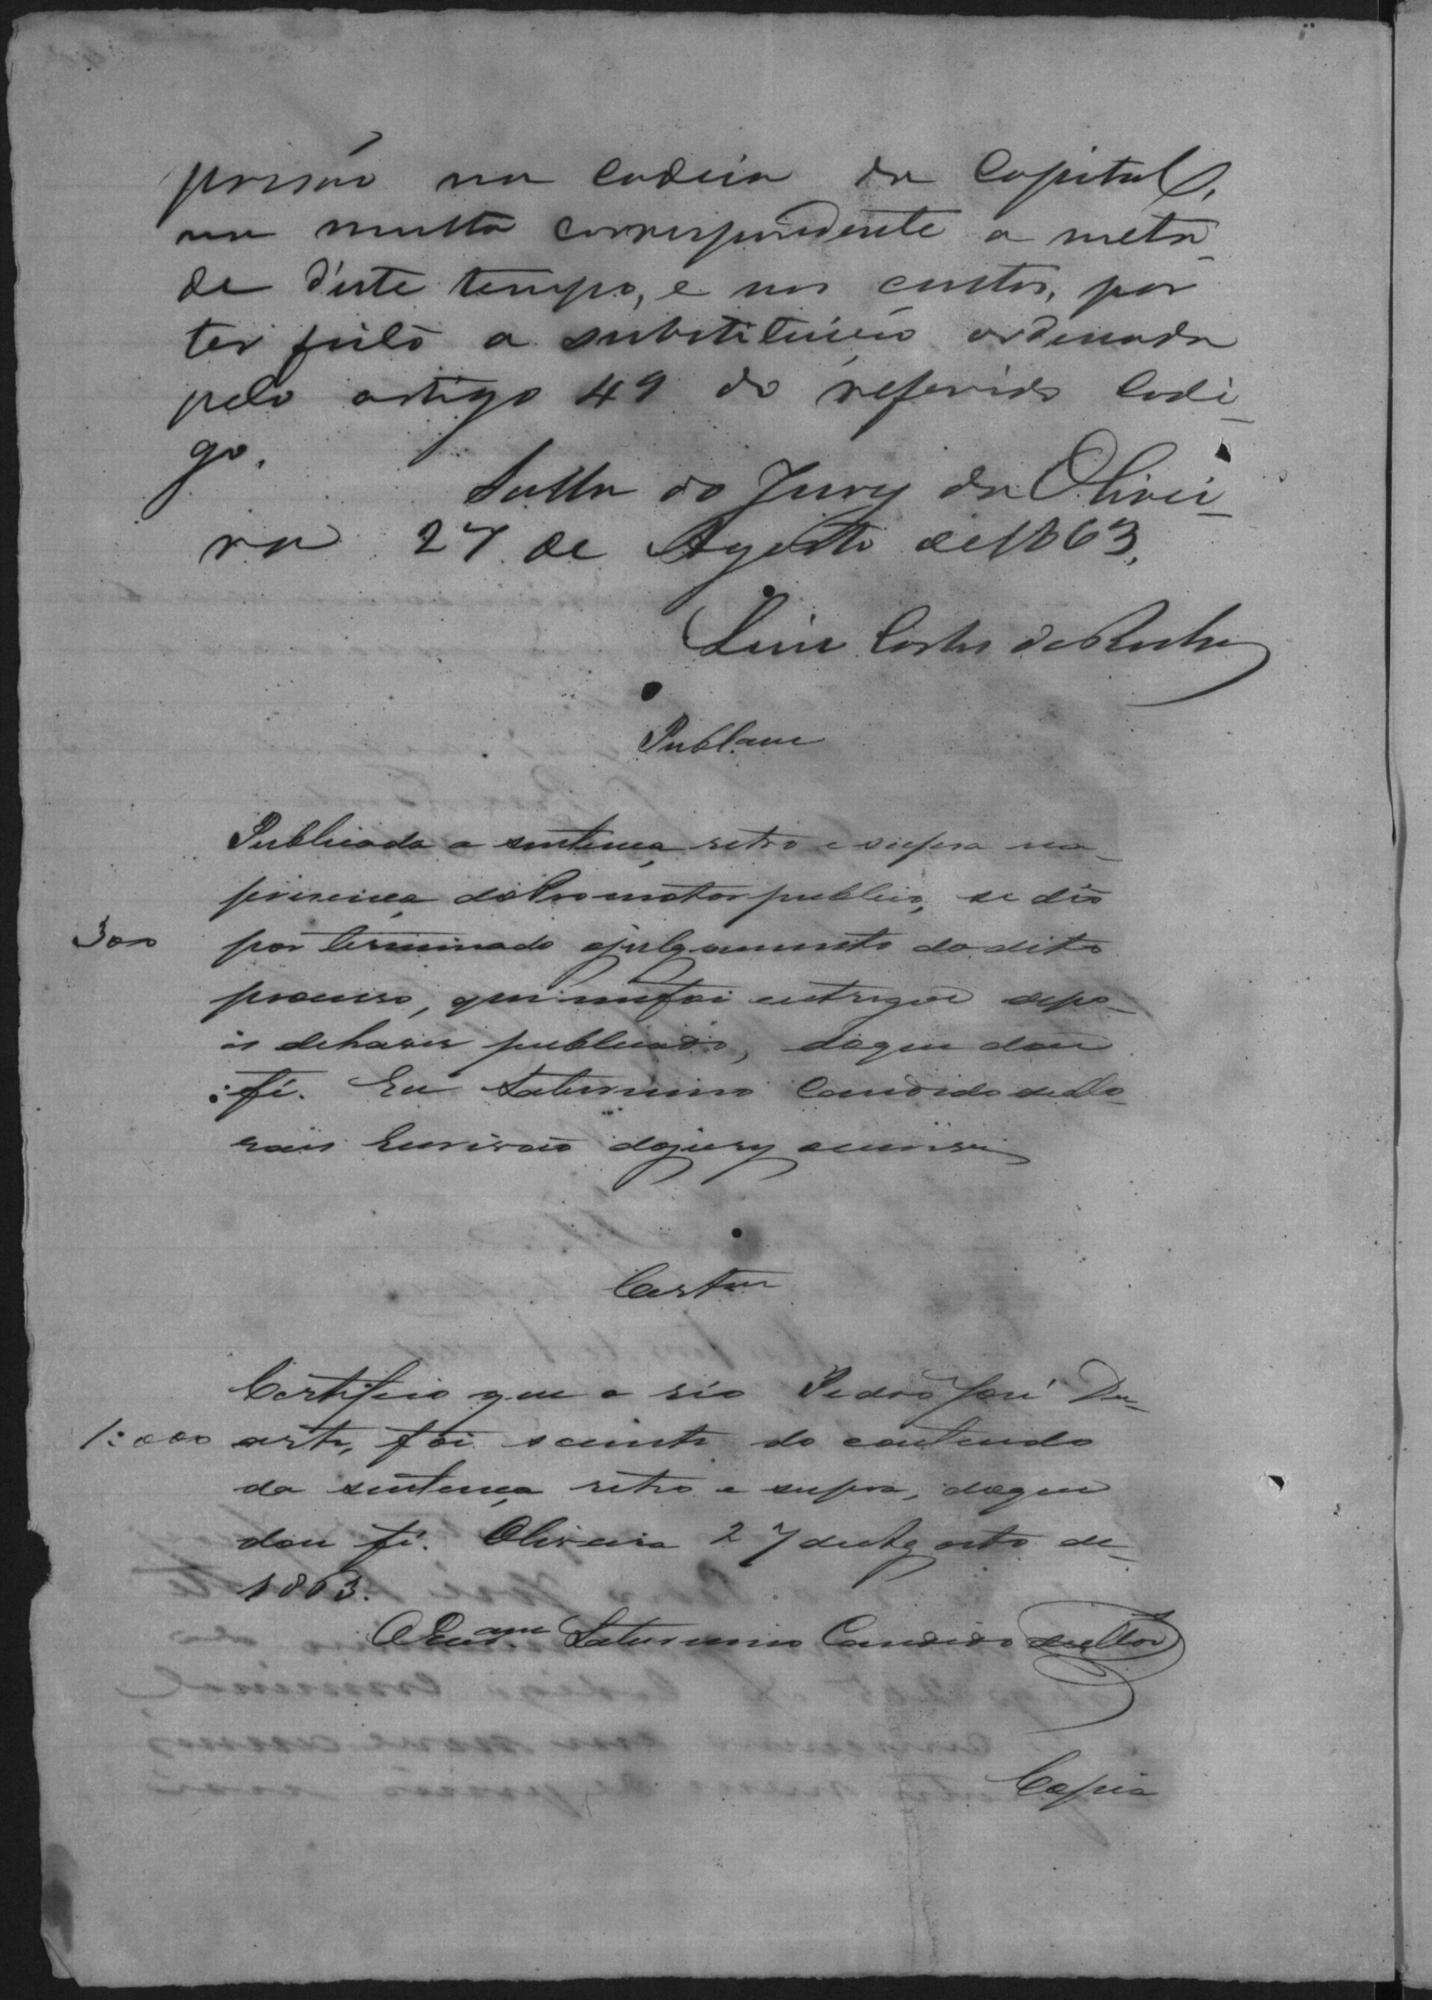 prisão na cadeia da Capital,
na multa correspondente a meta-
de d'este tempo, e nas custas, por
ter feito a substituição ordenada
pelo artigo 49 do referido Codi-
go.
Salla do Jury da Olivei-
ra 27 de Agosto de 1863.
Luis Carlos da Rocha
Publ.am
Publicada a sentença retro e supra na
presença do Promotor publico, se dêo
300 por terminado o julgamento do dito
processo, que me foi entregue depo-
is de haver publicado, do que dou
fé. Eu Saturnino Candido de Mo-
raes Escrivão do jury o escrevi
Certam
Certifico que o réo Pedro José Du-
1:000 arte, foi sciente do conteudo
da sentença retro e supra, do que
dou fé. Oliveira 27 de Agosto de
1863.
Saturnino Candido de Mor
Copia